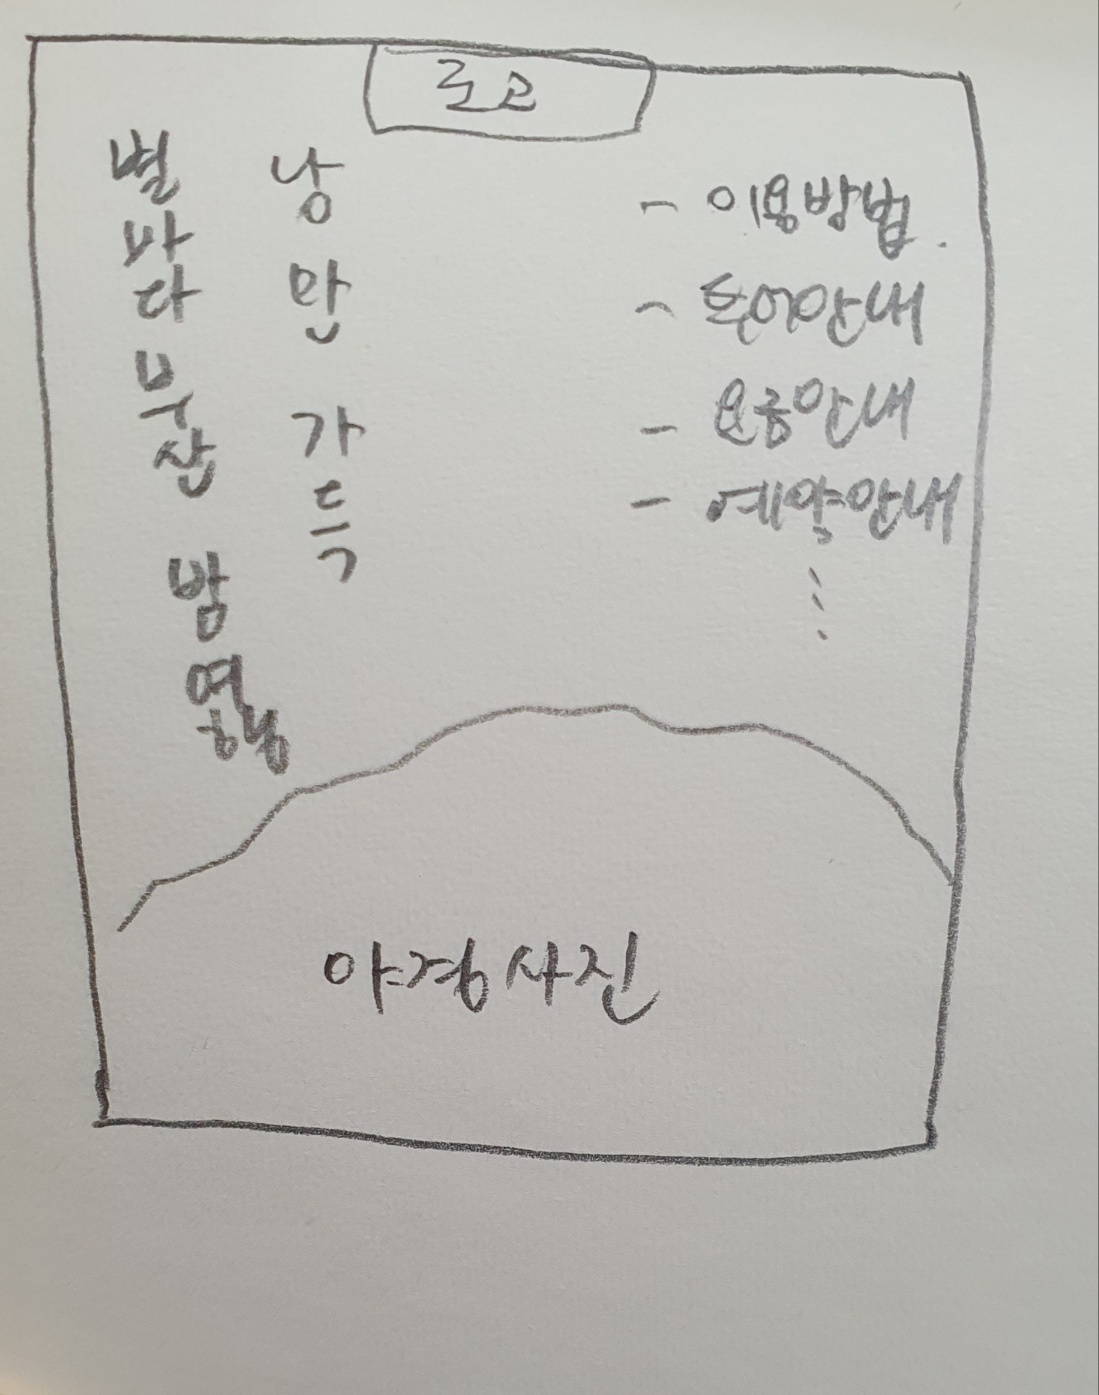 로고
별바다부산 밤 여행
낭만 가득
- 이용방법
- 투어안내
- 요금안내
- 예약안내
⋮
야경사진